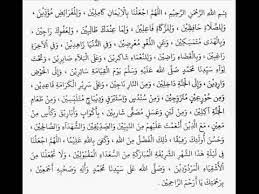 بِسْمِ اللهِ الرَّحْمٰنِ الرَّحِيْمِ ، اَللّٰهُمَّ اجْعَلْنَا بِالْاِيْمَانِ كَامِلِيْنَ ، وَلِلْفَرَائِضِ مُؤَدِّيْنَ ،
وَلِلصَّلَاةِ حَافِظِيْنَ ، وَلِلزَّكَاةِ فَاعِلِيْنَ ، وَلِمَا عِنْدَكَ طَالِبِيْنَ ، وَلِعَفْوِكَ رَاجِيْنَ ،
وَبِالْهُدَى مُتَمَسِّكِيْنَ ، وَعَنِ اللَّغْوِ مُعْرِضِيْنَ ، وَفِي الدُّنْيَا زَاهِدِيْنَ ، وَفِي الْآخِرَةِ
رَاغِبِيْنَ ، وَبِالْقَضَاءِ رَاضِيْنَ ، وَبِالنَّعْمَاءِ شَاكِرِيْنَ ، وَعَلَى الْبَلَاءِ صَابِرِيْنَ ، وَتَحْتَ
لِوَاءِ سَيِّدِنَا مُحَمَّدٍ صَلَّى اللهُ عَلَيْهِ وَسَلَّمَ يَوْمَ الْقِيَامَةِ سَائِرِيْنَ ، وَاِلَى الْحَوْضِ
وَارِدِيْنَ ، وَاِلَى الْجَنَّةِ دَاخِلِيْنَ ، وَمِنَ النَّارِ نَاجِيْنَ ، وَعَلَى سَرِيْرِ الْكَرَامَةِ قَاعِدِيْنَ ،
وَمِنْ حُوْرٍ عِيْنٍ مُتَزَوِّجِيْنَ ، وَمِنْ سُنْدُسٍ وَاِسْتَبْرَقٍ وَدِيْبَاجٍ مُتَلَبِّسِيْنَ ، وَمِنْ طَعَامِ
الْجَنَّةِ آكِلِيْنَ ، وَمِنْ لَبَنٍ وَعَسَلٍ مُصَفًّى شَارِبِيْنَ ، بِاَكْوَابٍ وَاَبَارِيْقَ وَكَأْسٍ مِنْ
مَعِيْنٍ ، مَعَ الَّذِيْنَ اَنْعَمْتَ عَلَيْهِمْ مِنَ النَّبِيِّيْنَ وَالصِّدِّيْقِيْنَ وَالشُّهَدَاءِ وَالصَّالِحِيْنَ ،
وَحَسُنَ اُولٰئِكَ رَفِيْقًا ، ذٰلِكَ الْفَضْلُ مِنَ اللهِ وَكَفَى بِاللهِ عَلِيْمًا ، اَللّٰهُمَّ اجْعَلْنَا
فِي لَيْلَةِ هٰذَا الشَّهْرِ الشَّرِيْفَةِ الْمُبَارَكَةِ مِنَ السُّعَدَاءِ الْمَقْبُوْلِيْنَ ، وَلَا تَجْعَلْنَا مِنَ
الْاَشْقِيَاءِ الْمَرْدُوْدِيْنَ ، وَصَلَّى اللهُ عَلَى سَيِّدِنَا مُحَمَّدٍ وَآلِهِ وَصَحْبِهِ اَجْمَعِيْنَ ،